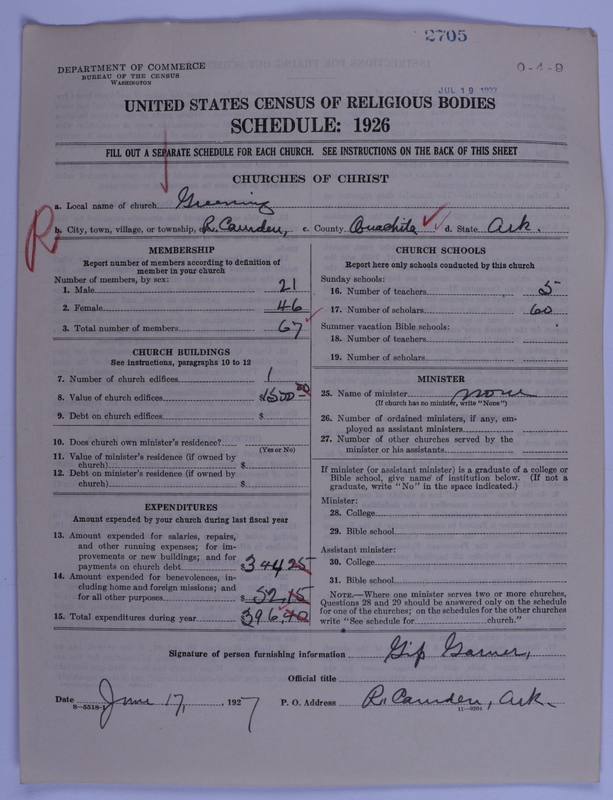 2705
DEPARTMENT OF COMMERCE
BUREAU OF THE CENSUS
WASHINGTON
0-4-9
JUL 19 1927
UNITED STATES CENSUS OF RELIGIOUS BODIES
SCHEDULE: 1926
FILL OUT A SEPARATE SCHEDULE FOR EACH CHURCH. SEE INSTRUCTIONS ON THE BACK OF THIS SHEET
CHURCHES OF CHRIST
a. Local name of church Greening
R
b. City, town, village, or township, or R. Camden, c. County Ouachita d. State Ark.
MEMBERSHIP
Report number of members according to definition of
member in your church
Number of members, by sex:
1. Male 21
2. Female 46
3. Total number of members 67
CHURCH BUILDINGS
See instructions, paragraphs 10 to 12
7. Number of church edifices 1
8. Value of church edifices $1500 00
9. Debt on church edifices $
10. Does church own minister's residence?
(Yes or No)
11. Value of minister's residence (if owned by
church) $
12. Debt on minister's residence (if owned by
church) $
EXPENDITURES
Amount expended by your church during last fiscal year
13. Amount expended for salaries, repairs,
and other running expenses; for im-
provements or new buildings; and for
payments on church debt $344.25
14. Amount expended for benevolences, in-
cluding home and foreign missions; and
for all other purposes $52.15
15. Total expenditures during year $396.40
CHURCH SCHOOLS
Report here only schools conducted by this church
Sunday schools:
16. Number of teachers 5
17. Number of scholars 60
Summer vacation Bible schools:
18. Number of teachers
19. Number of scholars
MINISTER
25. Name of minister none
(If church has no minister, write "None")
26. Number of ordained ministers, if any, em-
ployed as assistant ministers
27. Number of other churches served by the
minister or his assistants
If minister (or assistant minister) is a graduate of a college or
Bible school, give name of institution below. (If not a
graduate, write "No" in the space indicated.)
Minister:
28. College
29. Bible school
Assistant minister:
30. College
31. Bible school
NOTE.—Where one minister serves two or more churches,
Questions 28 and 29 should be answered only on the schedule
for one of the churches; on the schedules for the other churches
write "See schedule for church."
Signature of person furnishing information Gip Garner,
Official title
Date June 17, 1927 P. O. Address R. Camden, Ark.
8—5518-1 11—9204